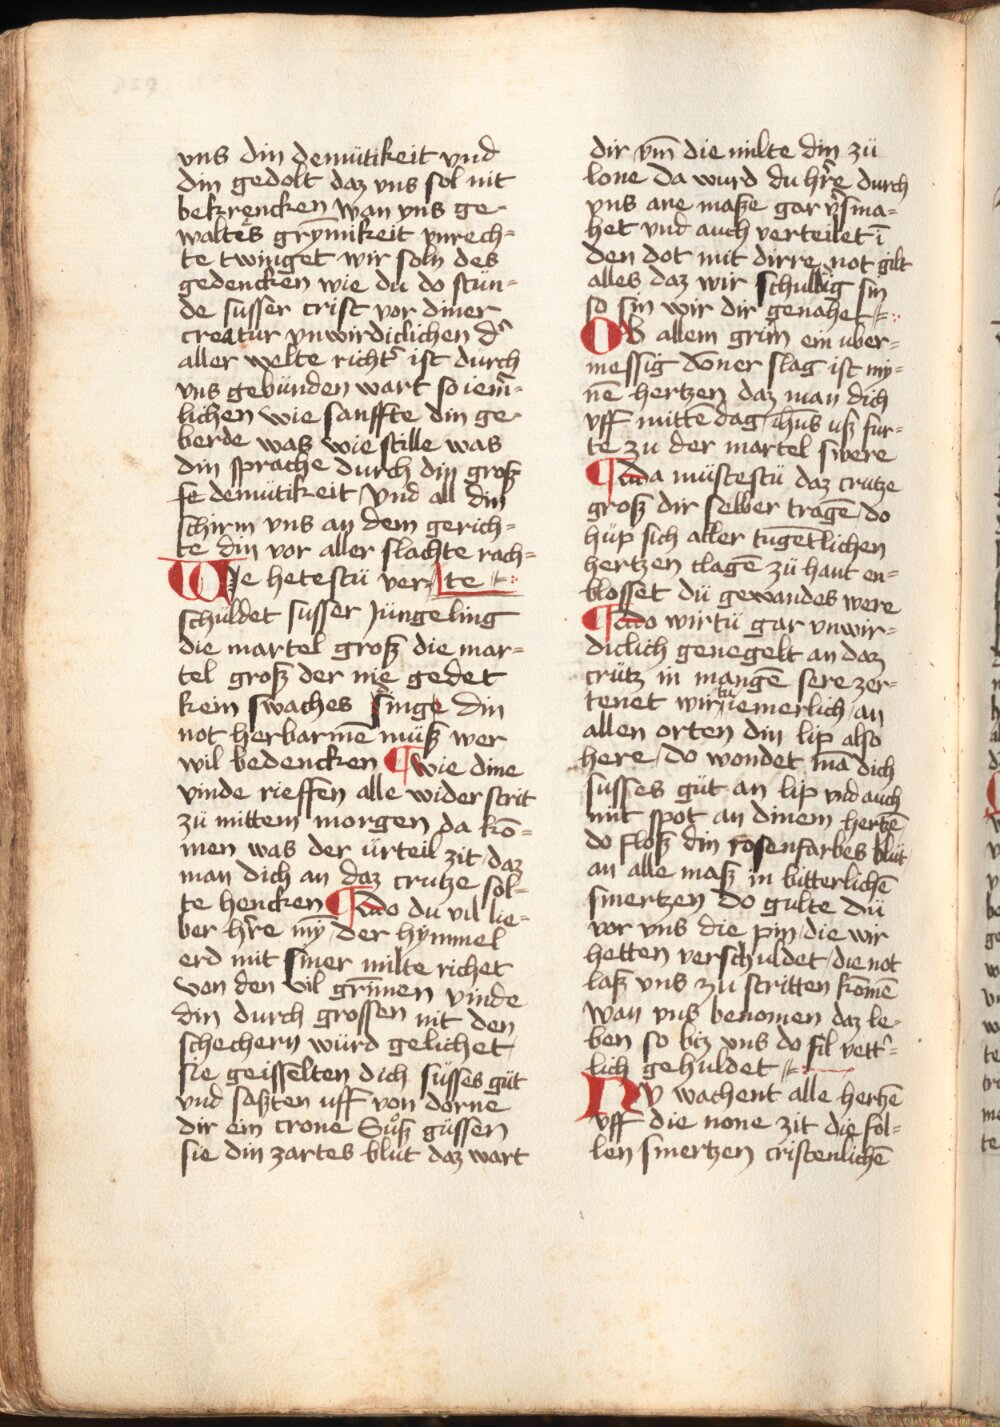 vns din demütikeit vnd
din gedolt daz vns sol nit
bekrencken wan vns ge-
waltes grym̄ikeit vnrech-
te twinget wir soln des
gedencken wie du do stün-
de susser crist vor diner
creatur vnwirdiclichen d'
aller welte richt' ist durch
vns gebünden wart so iem̄-
lichen wie sanffte din ge-
berde was wie stille was
din sprache durch din groß
se demütikeit vnd all din
schirm vns an dem gerich-
te din vor aller slachte rach-
Wie hetestü ver- te
schüldet susser Jüngeling
die martel groß die mar-
tel groß der nie gedet
kein swaches dinge din
not herbarmē müß wer
wil bedencken ¶ wie dine
vinde rieffen alle widerstrit
zü mittem morgen da kō-
men was der ürteil zit daz
man dich an daz crutze sol-
te hencken ¶ do du vil lie-
ber h're mȳ der hymmel
erd mit siner milte richet
von den vil grim̄en vinde
din durch grossen nit den
schechern würd gelichet
sie geisselten dich süsses güt
vnd saßten uff von dorne
dir ein crone Suͦß güssen
sie din zartes blüt daz wart
dir vm̄ die milte din zü
lone da wurd du h're durch
vns ane maße gar v'sma-
het vnd auch verteilet ī
den dot mit dirre not gilt
alles daz wir schuldig sin
so sin wir dir genahet
Ob allem grim̄ ein uber-
messig doner slag ist my-
nē hertzen daz man dich
vff mitte dag ihūs uß fur-
te zu der martel swere
¶ da müstestü daz crutze
groß dir selber tragē do
hüp sich aller tugētlichen
hertzen clagē zü hant en-
blosset dü gewandes were
¶ do wirtü gar vnwir-
diclich genegelt an daz
crütz in mangē sere zer-
tenet wirtu iemerlich an
allen orten din lip also
here do wondet mā dich
susses güt an lip vnd auch
mit spot an dinem hertzē
do floß din rosenfarbes blüt
an alle maß in bitterlichē
smertzen do gulte dü
vor vns die pin die wir
hetten verschuldet die not
laß vns zu stritten komē
wan vns benomen daz le-
ben so biz vns do fil rett'-
lich gehuldet
Nv wachent alle hertzē
vff die none zit die sol-
len smertzen cristenlichē